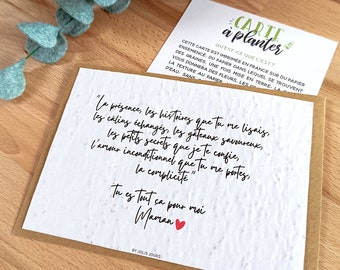 CARTE
à planter
QU'EST-CE QUE C'EST ?
CETTE CARTE EST IMPRIMÉE EN FRANCE SUR DU PAPIER
ENSEMENCÉ, DU PAPIER DANS LEQUEL SE TROUVENT
DES GRAINES. UNE FOIS MIS EN TERRE, LA
VOUS DONNERA DES FLEURS. LES
LA TEXTURE AU PAPIER
D'EAU. SANS
"La présence, les histoires que tu me lisais,
les câlins échangés, les gâteaux savoureux,
les petits secrets que je te confie,
l'amour inconditionnel que tu me portes,
la complicité"
Tu es tout ça pour moi
Maman
BY JOLIS JOUJES